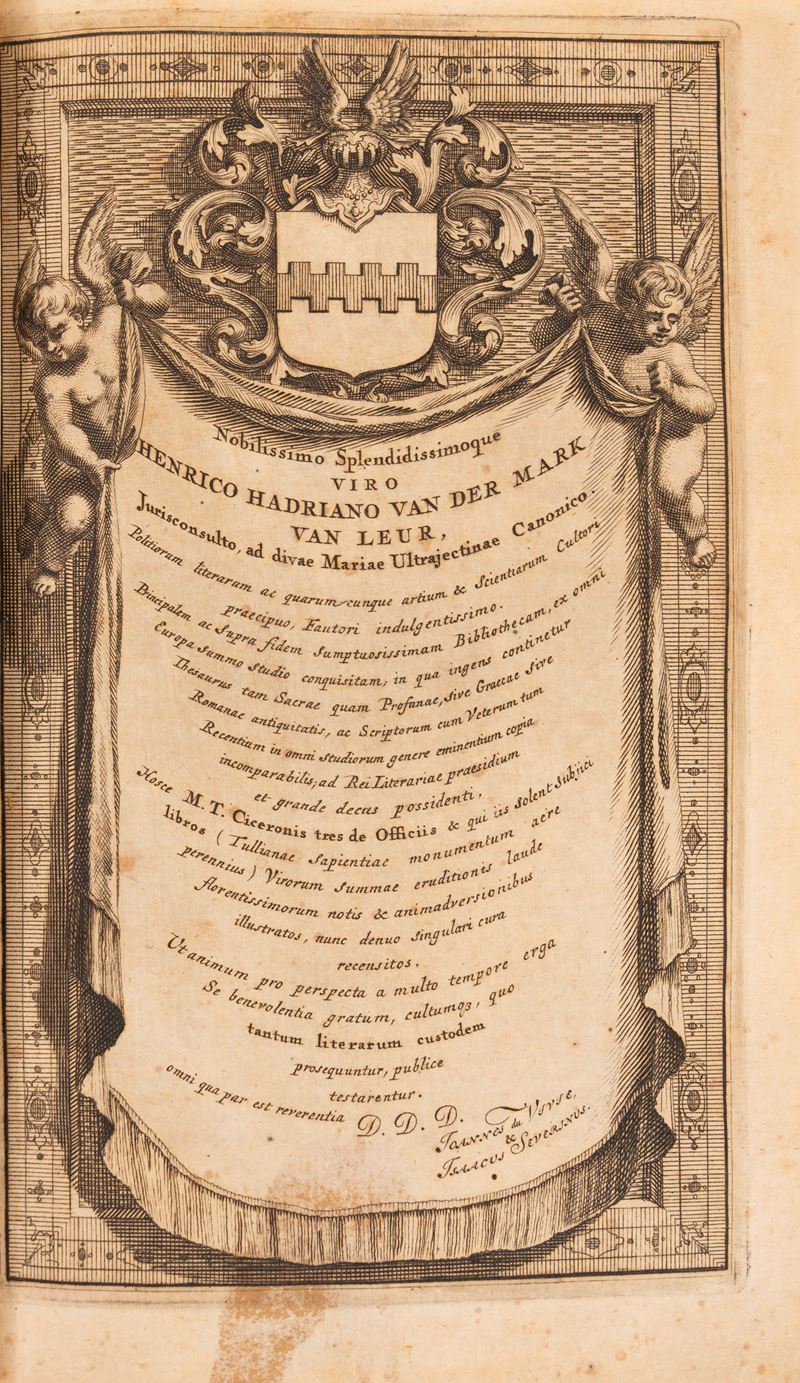 Nobilissimo Splendidissimoque
VIRO
HENRICO HADRIANO VAN DER MARK
VAN LEUR,
Jurisconsulto, ad divae Mariae Ultrajectinae Canonico.
Politiorum literarum ac quarumcunque artium & Scientiarum Cultori
praecipuo, Fautori indulgentissimo.
Principalem ac supra fidem sumptuosissimam Bibliothecam, ex omni
Europa summo studio conquisitam, in qua ingens continetur
Thesaurus tam Sacrae quam Profanae, sive Graecae sive
Romanae antiquitatis, ac Scriptorum cum Veterum tum
Recentium in omni studiorum genere eminentium copia
incomparabilis, ad Rei Literariae praesidium
et grande decus possidenti,
Hosce M. T. Ciceronis tres de Officiis & qui iis solent subjici
libros (Tullianae sapientiae monumentum aere
perennius) Virorum summae eruditionis laude
florentissimorum notis & animadversionibus
illustratos, nunc denuo singulari cura
recensitos.
Ut animum pro perspecta a multo tempore erga
Se benevolentia gratum, cultumq3, quo
tantum literarum custodem
prosequuntur, publice
testarentur.
omni qua par est reverentia D. D. D.
IOANNES du VIVIE,
&
ISAACUS SEVERINUS.